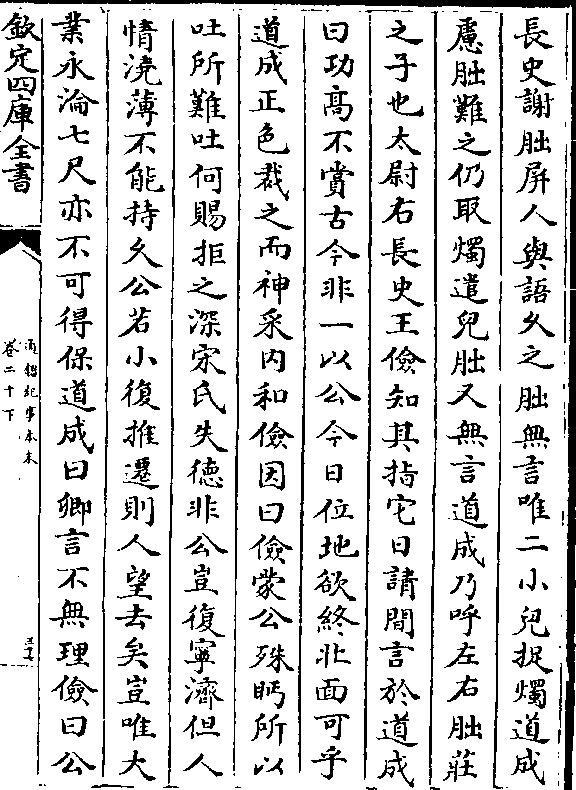 長史謝朏屏人與語久之朏無言唯二小兒捉燭道成
慮朏難之仍取燭遣兒朏又無言道成乃呼左右朏莊
之子也太尉右長史王儉知其指它日請間言於道成
曰功髙不賞古今非一以公今日位地欲終北面可乎
道成正色裁之而神采内和儉因曰儉蒙公殊眄所以
吐所難吐何賜拒之深宋氏失德非公豈復寧濟但人
情澆薄不能持久公若小復推遷則人望去矣豈唯大
業永淪七尺亦不可得保道成曰卿言不無理儉曰公
欽定四庫全書
通鑑紀事本末
卷二十下